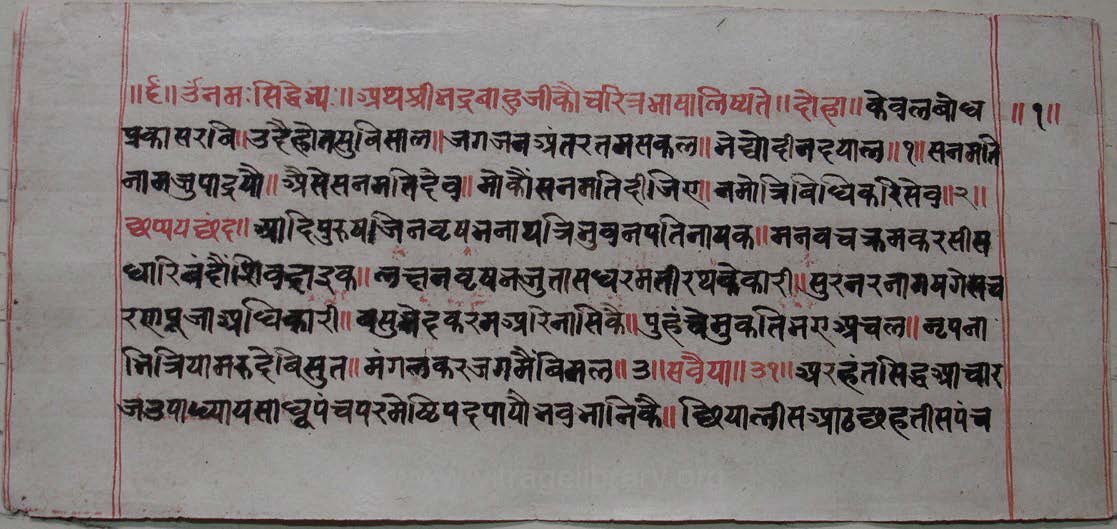 ॥ई॥ उँनमःसिद्धेभ्यः॥ अथश्रीभद्रबाहुजीकौचरित्रभाषालिष्यते॥ दोहा॥ केवलबोध ॥१॥
प्रकासरवि॥ उदैहोतसुविसाल॥ जगजनअंतरतमसकल॥ भेद्योदीनदयाल॥१॥ सनमति
नामजुपाइयौ॥ अैसेसनमतिदेव॥ मोकौंसनमतिदीजिए॥ नमोत्रिविधिकरिसेव॥२॥
छप्पयछंद॥ आदिपुरुषजिनवृषभनाथत्रिभुवनपतिनायक॥ मनवचक्रमकरसीस
धारिबंदौंशिवदाइक॥ लछनवृषभजुतासधरमतीरथकेकारी॥ सुरनरनागषगेसच
रणपूजाअधिकारी॥ वसुभेदकरमअरिनासिकै॥ पुहंचेमुकतिभएअचल॥ नृपना
भित्रियामरुदेविसुत॥ मंगलकरजगमैंविमल॥३॥ सवैया॥३१॥ अरहंतसिद्धआचार
जउपाध्यायसाधूपंचपरमेष्ठिपदपायौभवभानिकै॥ छियालीसआठछहतीसपंच